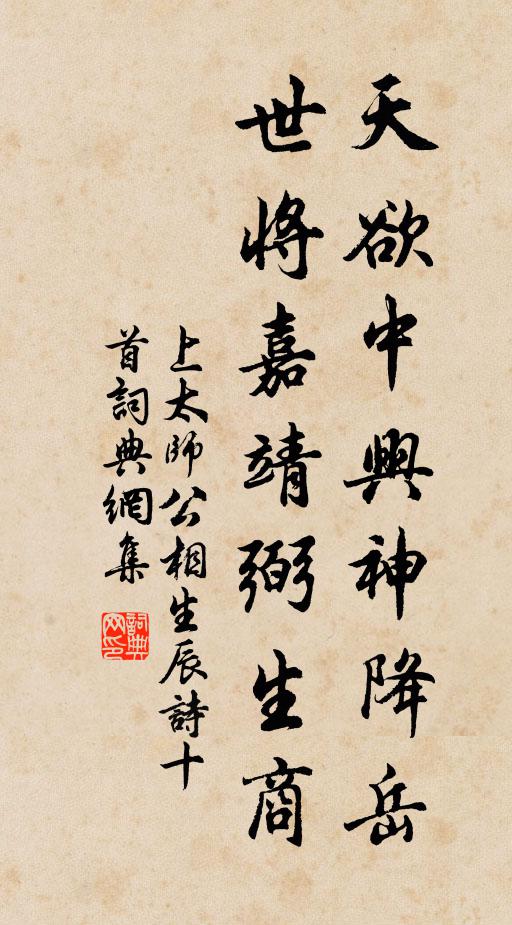 天欲中興神降岳
世將嘉靖弼生商
上太師公相生辰詩十
首詞典網集
詞典
网印